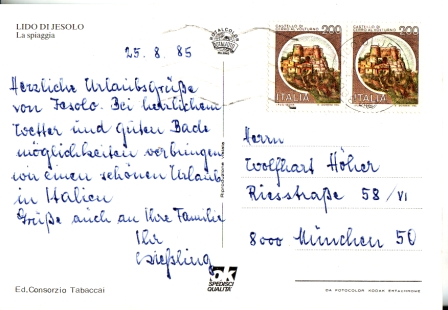 LIDO DI JESOLO
La spiaggia
25. 8. 85
Herzliche Urlaubsgrüße
von Jesolo. Bei herrlichem
Wetter und guten Bade
möglichkeiten verbringen
wir einen schönen Urlaub
in Italien.
Grüße auch an Ihre Familie
Ihr
Ed. Consorzio Tabaccai
CASTELLO DI
CERRO AL VOLTURNO
200
ITALIA
CASTELLO DI
CERRO AL VOLTURNO
300
ITALIA
Herrn
Wolfhart Höher
Riesstraße 58/VI
8000 München 50
ok
SPEDISCI
QUALITA'
DA FOTOCOLOR KODAK EKTACHROME